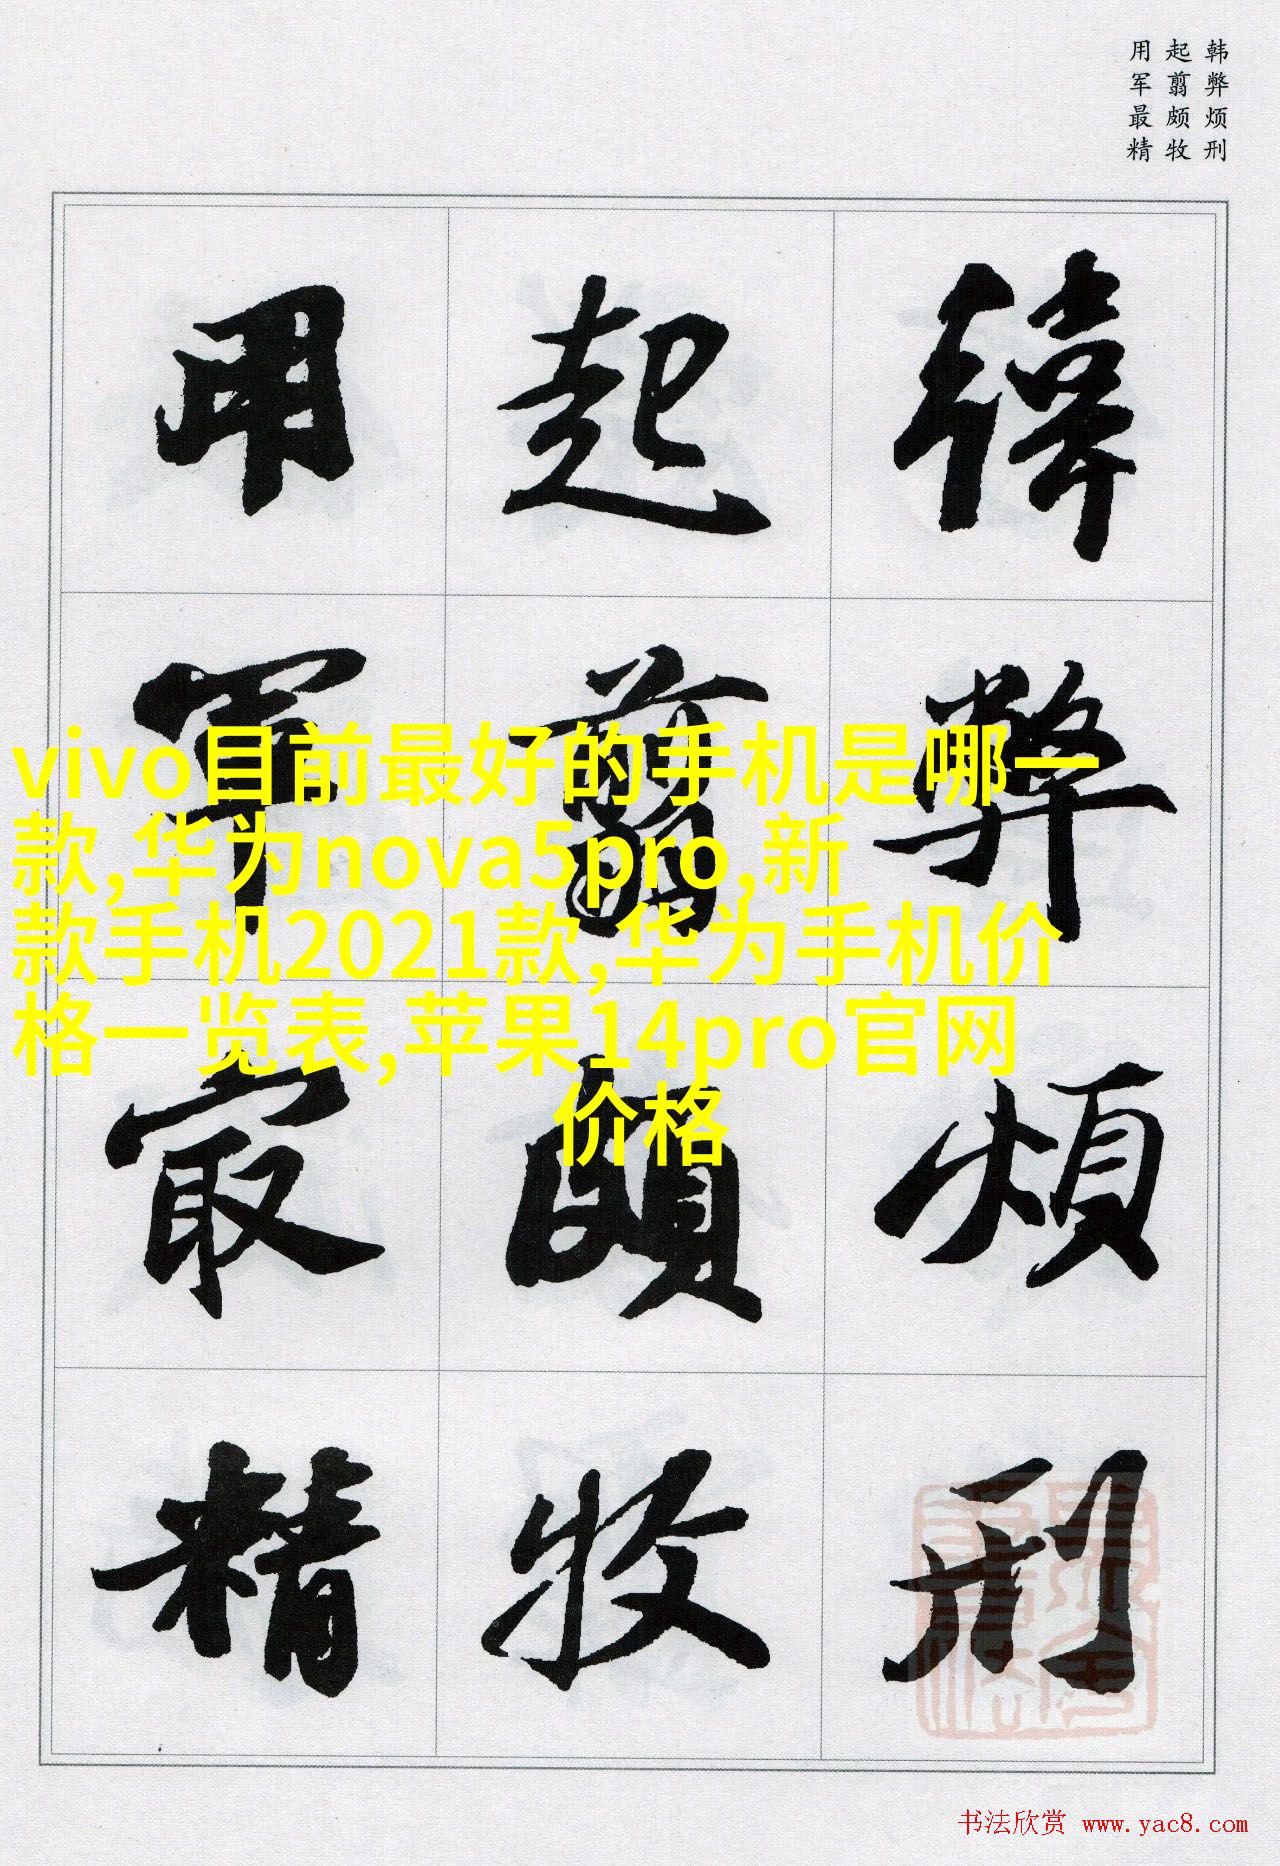 韩弊烦刑
起翦颇牧
用军最精
韓弊煩刑
起翦頗牧
用軍最精
vivo目前最好的手机是哪一
款,华为nova5pro,新
款手机2021款,华为手机价
格一览表,苹果14pro官网
价格
书法欣赏 www.yac8.com